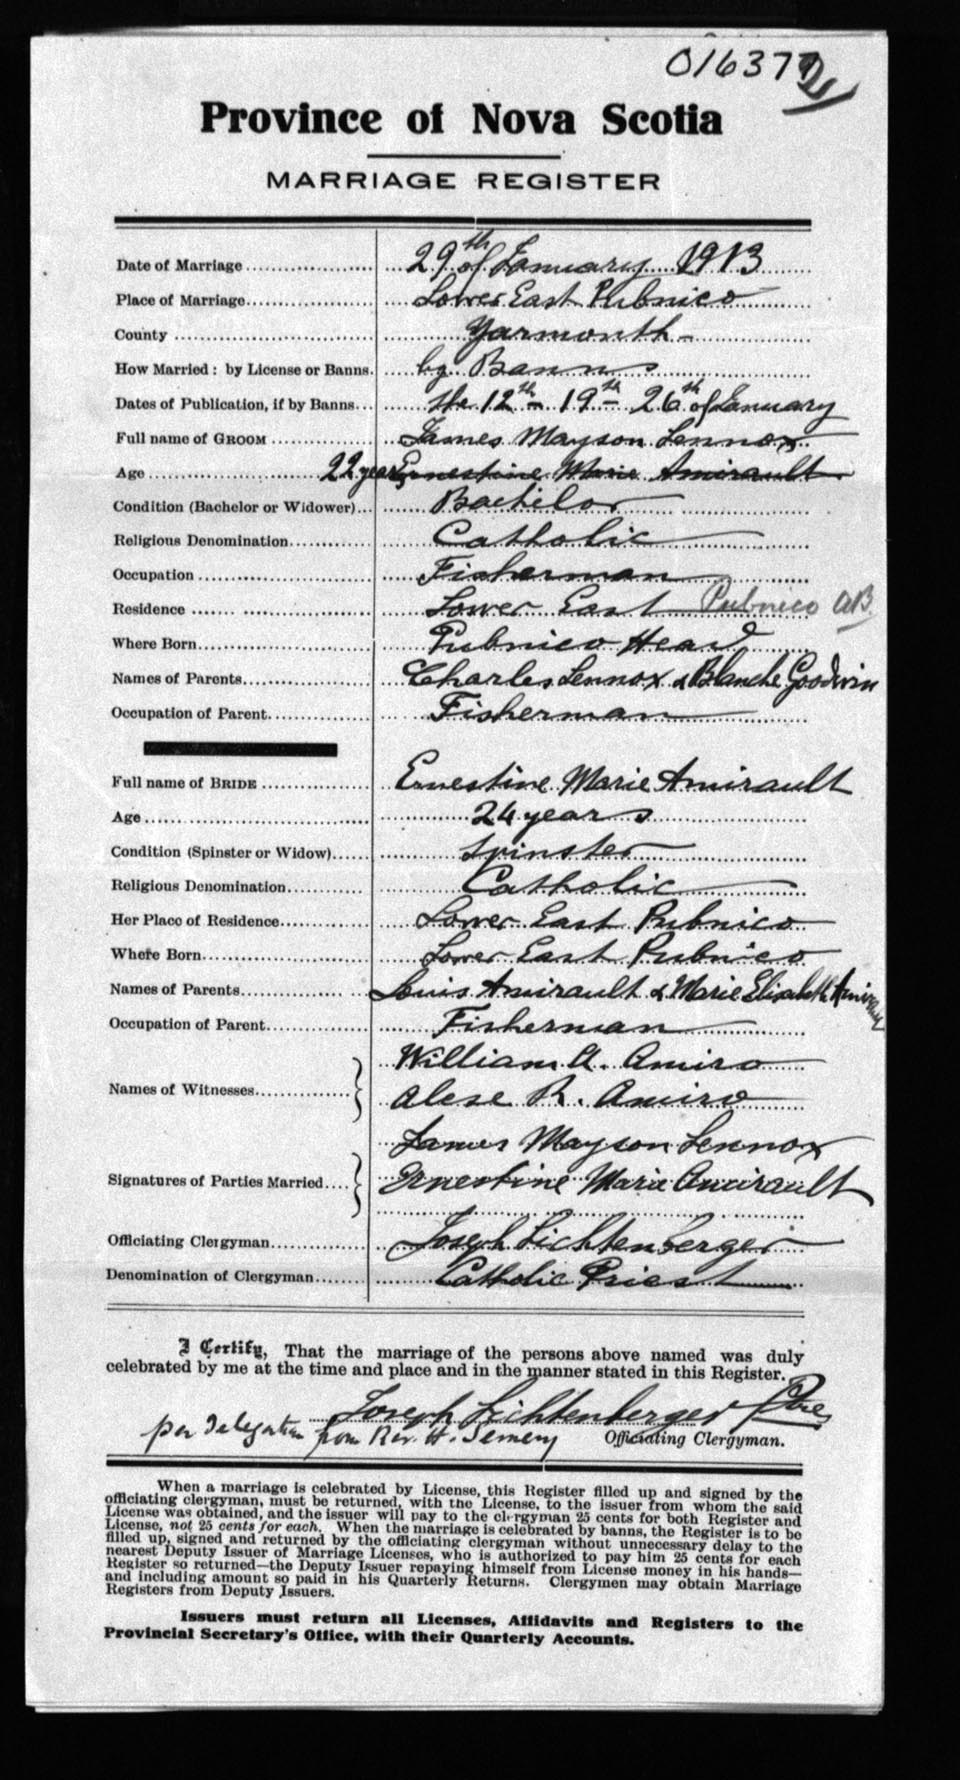 016372
Province of Nova Scotia
MARRIAGE REGISTER
Date of Marriage 29th of January 1913
Place of Marriage Lower East Pubnico
County Yarmouth
How Married: by License or Banns. by Banns
Dates of Publication, if by Banns the 12th - 19th - 26th of January
Full name of GROOM James Mayson Lennox
Age 22 years Ernestine Marie Amirault
Condition (Bachelor or Widower) Bachilor
Religious Denomination Catholic
Occupation Fisherman
Residence Lower East Pubnico AB
Where Born Pubnico Head
Names of Parents Charles Lennox & Blanche Goodwin
Occupation of Parent Fisherman
Full name of BRIDE Ernestine Marie Amirault
Age 24 years
Condition (Spinster or Widow) Spinster
Religious Denomination Catholic
Her Place of Residence Lower East Pubnico
Where Born Lower East Pubnico
Names of Parents Louis Amirault & Marie Elisabeth Amirault
Occupation of Parent Fisherman
William A. Amiro
Names of Witnesses
R. Amiro
James Mayson Lennox
Signatures of Parties Married Ernestine Marie Amirault
Officiating Clergyman Joseph Lichtenberger
Denomination of Clergyman Catholic Priest
I Certify, That the marriage of the persons above named was duly
celebrated by me at the time and place and in the manner stated in this Register.
Joseph Lichtenberger
per Delegation from Rev. H. Officiating Clergyman.
When a marriage is celebrated by License, this Register filled up and signed by the
officiating clergyman, must be returned, with the License, to the issuer from whom the said
License was obtained, and the issuer will pay to the clergyman 25 cents for both Register and
License, not 25 cents for each. When the marriage is celebrated by banns, the Register is to be
filled up, signed and returned by the officiating clergyman without unnecessary delay to the
nearest Deputy Issuer of Marriage Licenses, who is authorized to pay him 25 cents for each
Register so returned—the Deputy Issuer repaying himself from License money in his hands—
and including amount so paid in his Quarterly Returns. Clergymen may obtain Marriage
Registers from Deputy Issuers.
Issuers must return all Licenses, Affidavits and Registers to the
Provincial Secretary's Office, with their Quarterly Accounts.